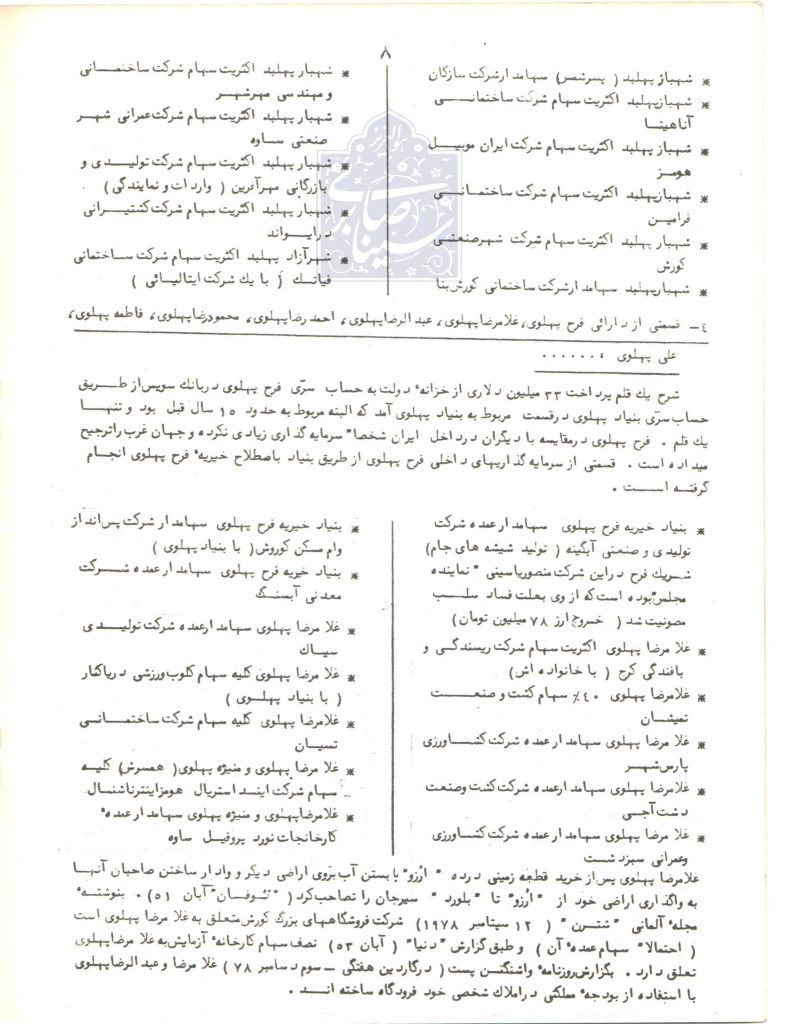 ۸
* شهباز پهلبد ( پسرشمس) سهامدار شرکت سازگان
* شهباز پهلبد اکثریت سهام شرکت ساختمانی
آناهیتا
* شهباز پهلبد اکثریت سهام شرکت ایران موبیل
هومز
* شهباز پهلبد اکثریت سهام شرکت ساختمانی
فرامین
* شهباز پهلبد اکثریت سهام شرکت شهرصنعتی
کورش
* شهبازپهلبد سهامدار شرکت ساختمانی کورش بنا
* شهباز پهلبد اکثریت سهام شرکت ساختمانی
و مهندسی مهرشهر
* شهباز پهلبد اکثریت سهام شرکت عمرانی شهر
صنعتی ساوه
* شهباز پهلبد اکثریت سهام شرکت تولیدی و
بازرگانی مهرآفرین ( واردات و نمایندگی )
* شهباز پهلبد اکثریت سهام شرکت کشتیرانی
دراپواند
* شهرآزاد پهلبد اکثریت سهام شرکت ساختمانی
فیاتک ( با یك شرکت ایتالیائی )
٤- قسمتی از دارائی فرح پهلوی، غلامرضا پهلوی، عبدالرضا پهلوی، احمدرضا پهلوی، محمودرضا پهلوی، فاطمه پهلوی،
علی پهلوی ، ......
شرح یك قلم پرداخت ۳۳ میلیون دلاری از خزانهٔ دولت به حساب سرّی فرح پهلوی دربانك سویس از طریق
حساب سرّی بنیاد پهلوی درقسمت مربوط به بنیاد پهلوی آمد که البته مربوط به حدود ۱۵ سال قبل بود و تنها
یك قلم . فرح پهلوی درمقایسه با دیگران در داخل ایران شخصا" سرمایه گذاری زیادی نکرده و جهان غرب را ترجیح
میداده است . قسمتی از سرمایه گذاریهای داخلی فرح پهلوی از طریق بنیاد باصطلاح خیریهٔ فرح پهلوی انجام
گرفته است .
* بنیاد خیریه فرح پهلوی سهامدار عمده شرکت
تولیدی و صنعتی آبگینه ( تولید شیشه های جام)
شریك فرح دراین شرکت منصوریاسینی " نماینده
مجلس" بوده است که از وی بعلت فساد سلب
مصونیت شد ( خروج ارز ۷۸ میلیون تومان)
* غلامرضا پهلوی اکثریت سهام شرکت ریسندگی و
بافندگی کرج ( با خانواده اش)
* غلامرضا پهلوی ۴۰٪ سهام کشت و صنعت
تمیشان
* غلامرضا پهلوی سهامدار عمده شرکت کشاورزی
پارس شهر
* غلامرضا پهلوی سهامدار عمده شرکت کشت وصنعت
دشت آجی
* غلامرضا پهلوی سهامدار عمده شرکت کشاورزی
وعمرانی سبزدشت
* بنیاد خیریه فرح پهلوی سهامدار شرکت پس انداز
وام مسکن کوروش( با بنیاد پهلوی )
* بنیاد خیریه فرح پهلوی سهامدار عمده شرکت
معدنی آبسنگ
* غلامرضا پهلوی سهامدار عمده شرکت تولیدی
سپاك
* غلامرضا پهلوی کلیه سهام کلوب ورزشی دریاکنار
( با بنیاد پهلوی )
* غلامرضا پهلوی کلیه سهام شرکت ساختمانی
تسیان
* غلامرضا پهلوی و منیژه پهلوی( همسرش) کلیه
سهام شرکت ایند استریال هومز اینترناشنال
* غلامرضا پهلوی و منیژه پهلوی سهامدار عمدهٔ
کارخانجات نورد پروفیل ساوه
غلامرضا پهلوی پس از خرید قطعه زمینی درده " ارُزو" با بستن آب بروی اراضی دیگر و وادار ساختن صاحبان آنها
به واگذاری اراضی خود از " ارُزو" تا " بلورد " سیرجان را تصاحب کرد ( "تئوفان" آبان ۵۱) . بنوشتهٔ
مجلهٔ آلمانی " شترن " ( ۱۲ سپتامبر ۱۹۷۸) شرکت فروشگاههای بزرگ کورش متعلق به غلامرضا پهلوی است
( احتمالا" سهام عمدهٔ آن ) و طبق گزارش "دنیا" ( آبان ۵۳) نصف سهام کارخانهٔ آزمایش به غلامرضا پهلوی
تعلق دارد . بگزارش روزنامهٔ واشنگتن پست ( درگاردین هفتگی – سوم دسامبر ۷۸) غلامرضا و عبدالرضا پهلوی
با استفاده از بودجهٔ مملکتی دراملاك شخصی خود فرودگاه ساخته اند .